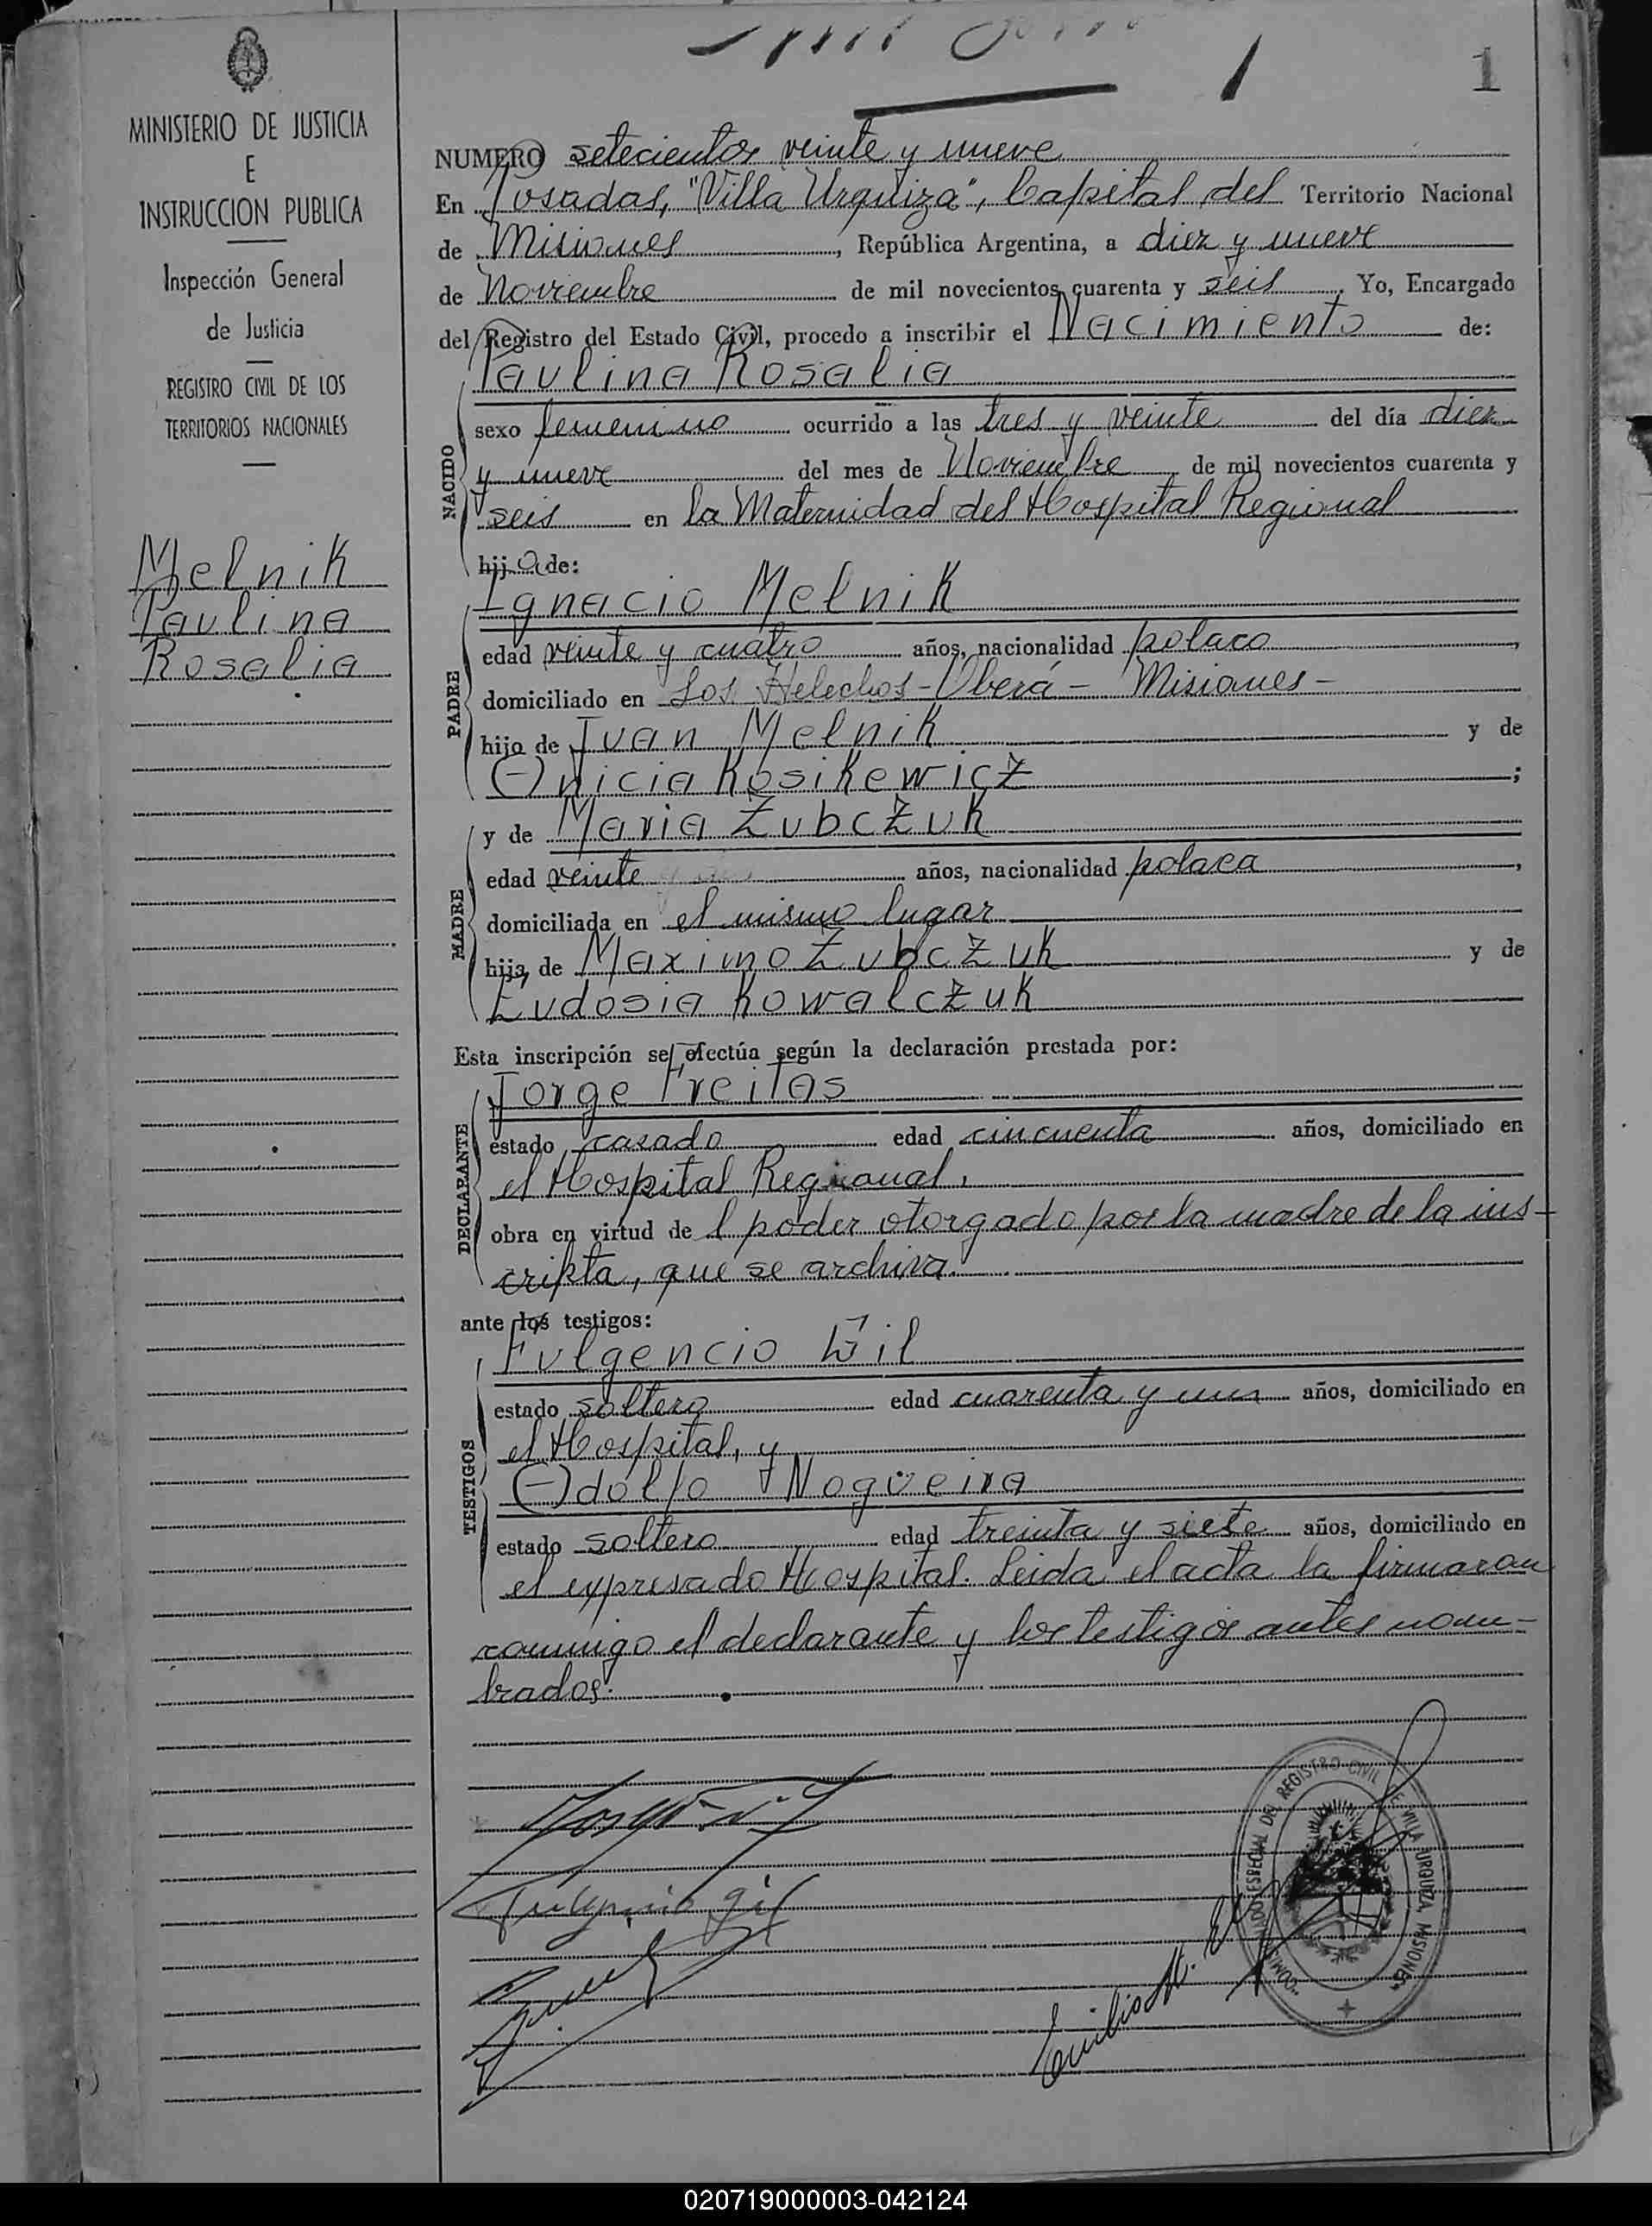 1
MINISTERIO DE JUSTICIA
E
INSTRUCCION PUBLICA
Inspección General
de Justicia
REGISTRO CIVIL DE LOS
TERRITORIOS NACIONALES
Melnik
Paulina
Rosalia
NUMERO setecientos veinte y nueve
En Posadas, "Villa Urquiza", Capital del Territorio Nacional
de Misiones, República Argentina, a diez y nueve
de Noviembre de mil novecientos cuarenta y seis. Yo, Encargado
del Registro del Estado Civil, procedo a inscribir el Nacimiento de:
NACIDO
Paulina Rosalia
sexo femenino ocurrido a las tres y veinte del día diez
y nueve del mes de Noviembre de mil novecientos cuarenta y
seis en la Maternidad del Hospital Regional
hija de:
PADRE
Ignacio Melnik
edad veinte y cuatro años, nacionalidad polaco,
domiciliado en Los Helechos - Oberá - Misiones -
hijo de Ivan Melnik y de
Anicia Kosikewicz;
MADRE
y de Maria Zubczuk
edad veinte años, nacionalidad polaca,
domiciliada en el mismo lugar
hija de Maximo Zubczuk y de
Eudosia Kowalczuk
Esta inscripción se efectúa según la declaración prestada por:
DECLARANTE
Jorge Freitas
estado casado edad cincuenta años, domiciliado en
el Hospital Regional,
obra en virtud del poder otorgado por la madre de la ins-
cripta, que se archiva.
ante los testigos:
TESTIGOS
Fulgencio Gil
estado soltero edad cuarenta y un años, domiciliado en
el Hospital, y
Adolfo Nogueira
estado soltero edad treinta y siete años, domiciliado en
el expresado Hospital. Leida el acta la firmaron
conmigo el declarante y los testigos antes nom-
brados.
Fulgencio Gil
Emilio
REGISTRO CIVIL DE VILLA URQUIZA, MISIONES
020719000003-042124